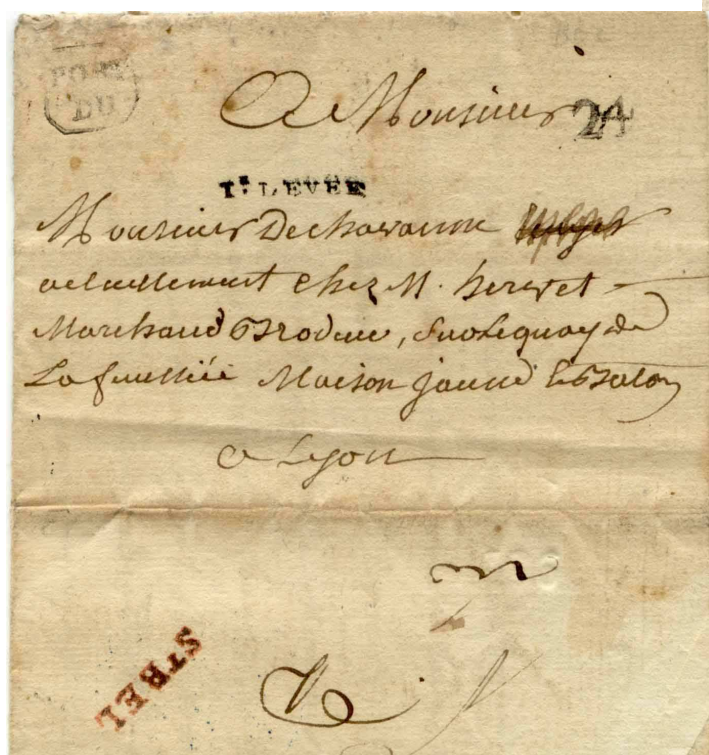 PORT
DU
A Monsieur 24
1re LEVEE
Monsieur Dechavanne
actuellement chez M. hervet
Marchand Brodeur, sur le quay de
La feuillée Maison jaune
a Lyon
ST BEL